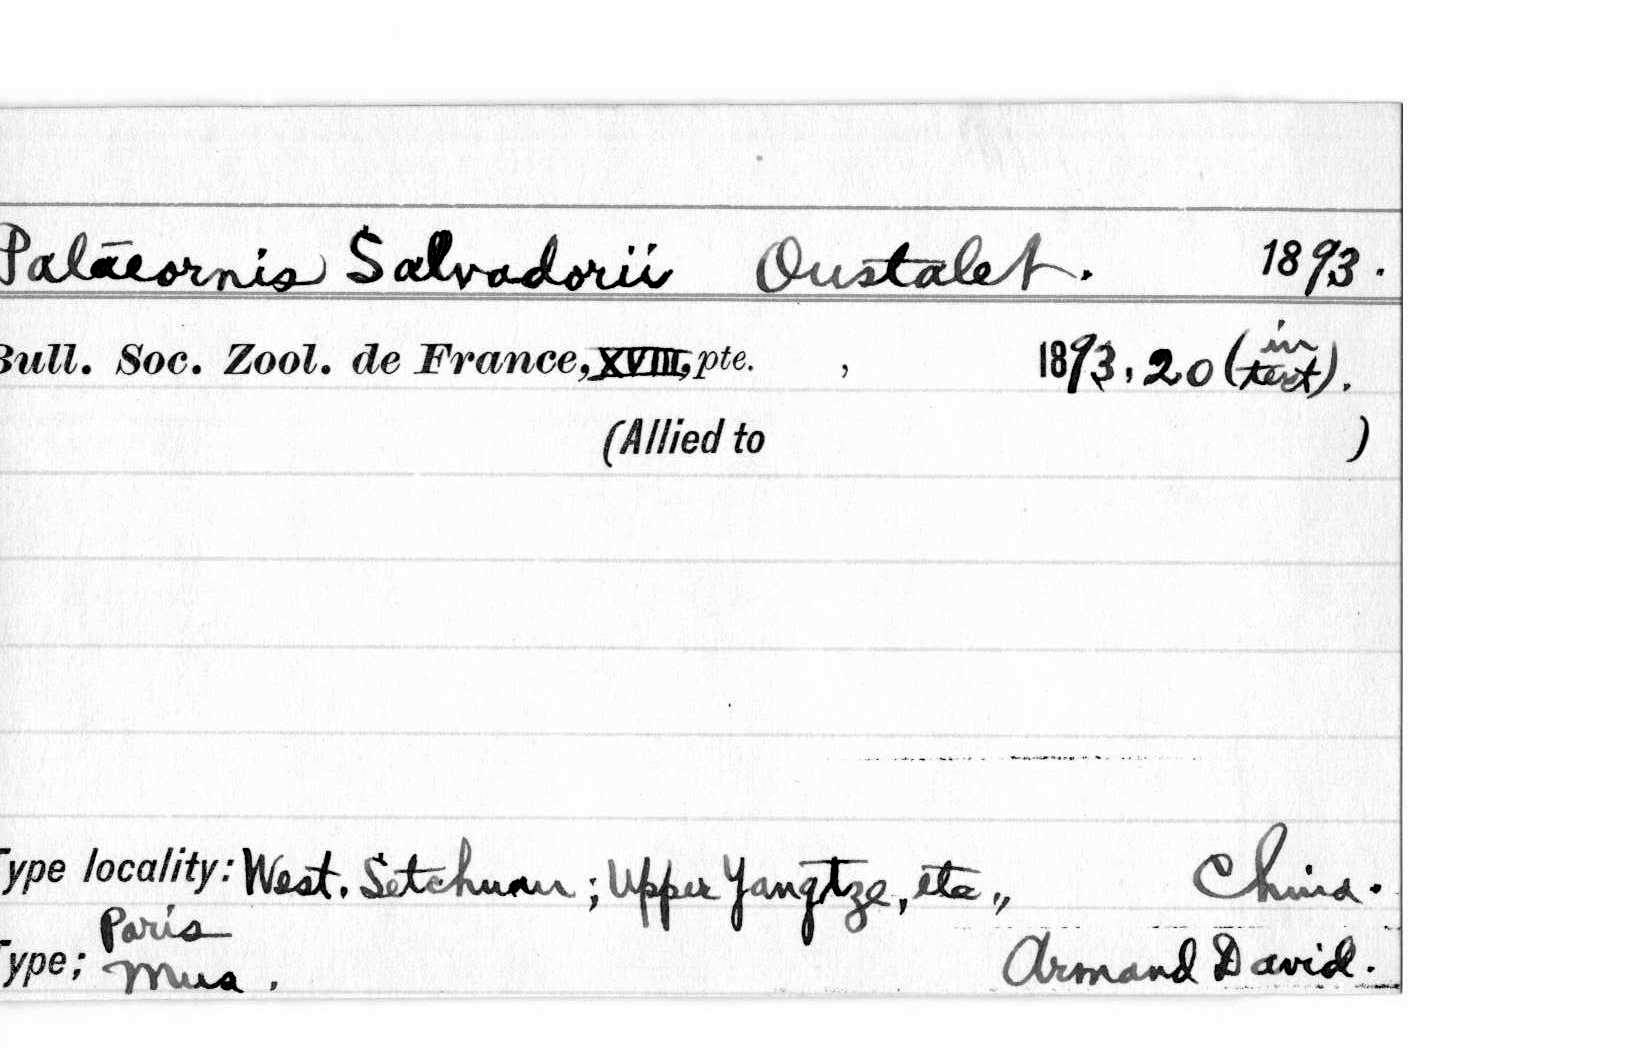 Palaeornis Salvadorii Oustalet. 1893.
Bull. Soc. Zool. de France, XVIII, pte. , 1893, 20 (in text).
(Allied to )
Type locality: West. Setchuan; Upper Yangtze, etc,, China.
Type; Paris Mus. Armand David.